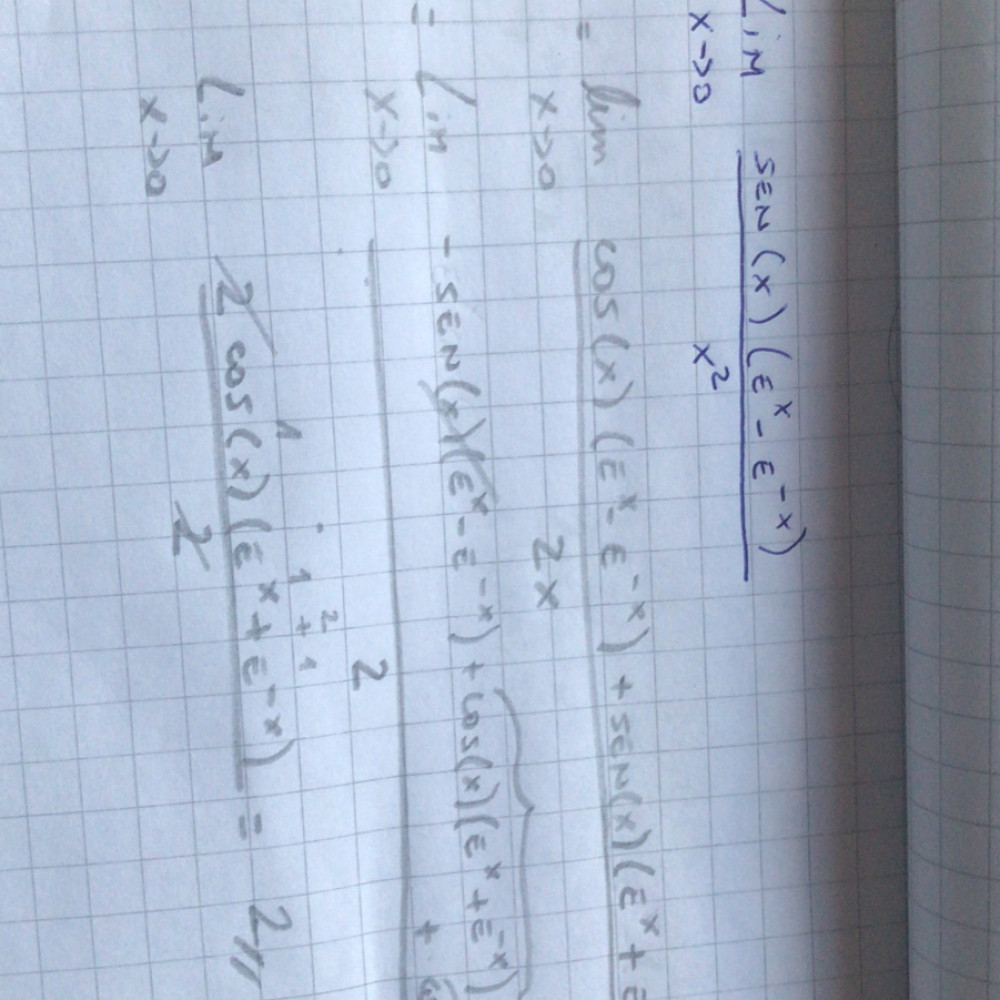 Lim x→0 SEN(x)(E^x - E^-x) / x²
= lim x→0 cos(x)(E^x - E^-x) + SEN(x)(E^x + E / 2x
= Lim x→0 -SEN(x)(E^x - E^-x) + cos(x)(E^x + E^-x) + / 2
1 1 2 + 1
Lim x→0 2 cos(x)(E^x + E^-x) / 2 = 2